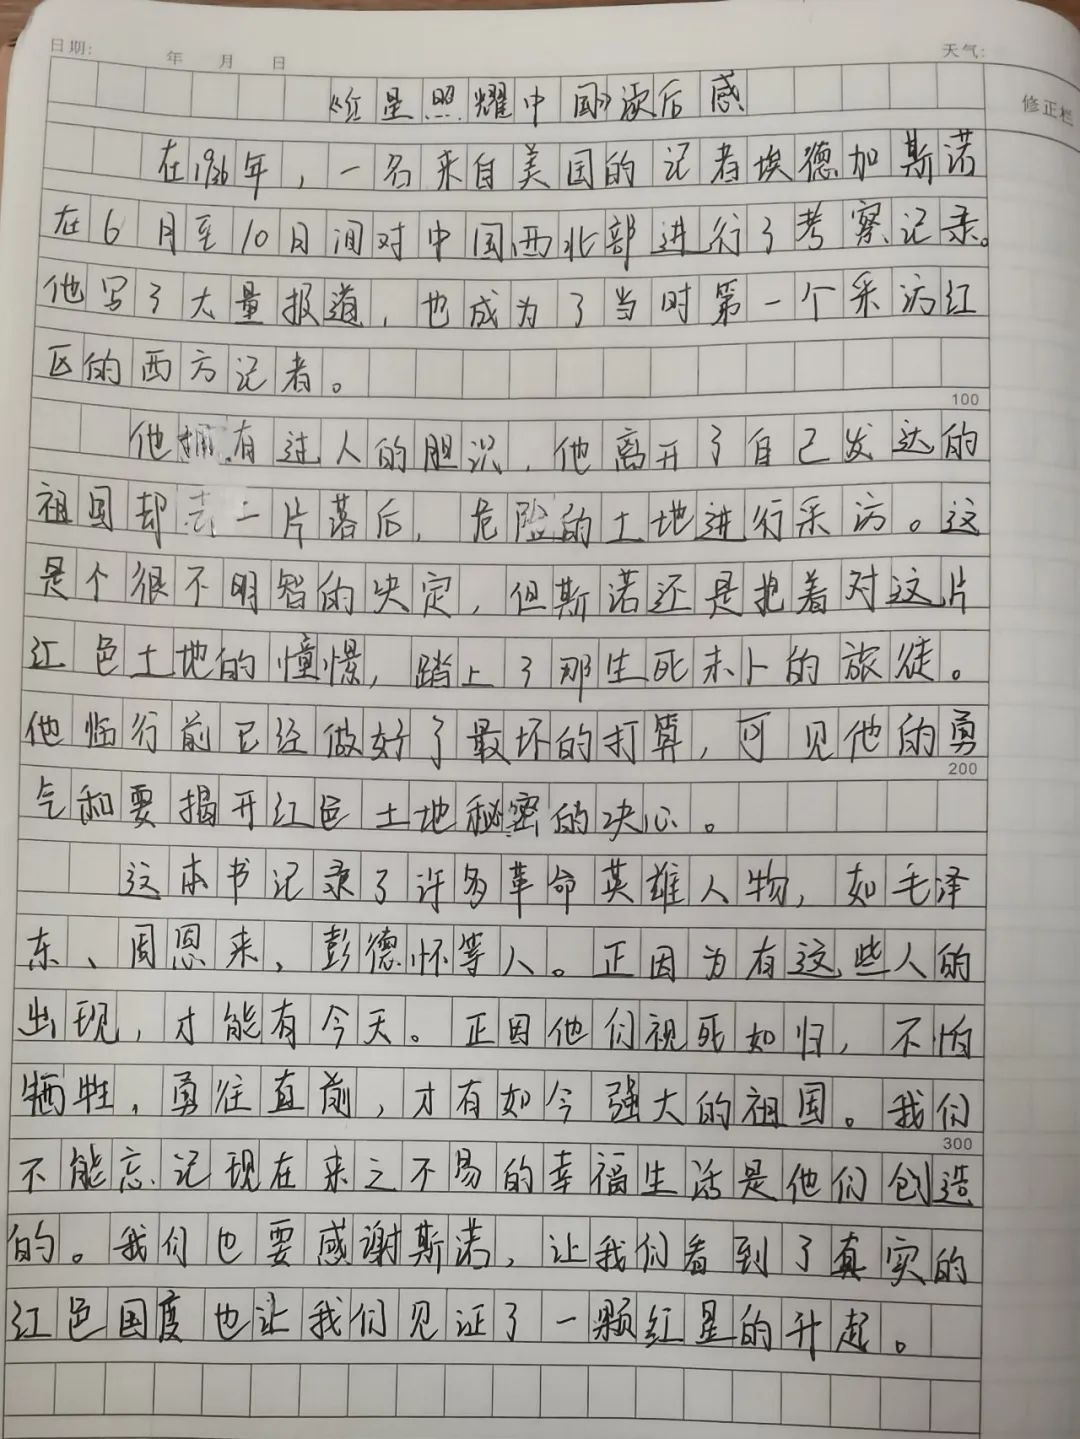 日期: 年 月 日 天气:
修正栏
《红星照耀中国》读后感
在1936年，一名来自美国的记者埃德加斯诺
在6月至10月间对中国西北部进行了考察记录。
他写了大量报道，也成为了当时第一个采访红
区的西方记者。
100
他拥有过人的胆识，他离开了自己发达的
祖国却去一片落后，危险的土地进行采访。这
是个很不明智的决定，但斯诺还是抱着对这片
红色土地的憧憬，踏上了那生死未卜的旅徒。
他临行前已经做好了最坏的打算，可见他的勇
200
气和要揭开红色土地秘密的决心。
这本书记录了许多革命英雄人物，如毛泽
东、周恩来，彭德怀等人。正因为有这些人的
出现，才能有今天。正因他们视死如归，不怕
牺牲，勇往直前，才有如今强大的祖国。我们
300
不能忘记现在来之不易的幸福生活是他们创造
的。我们也要感谢斯诺，让我们看到了真实的
红色国度也让我们见证了一颗红星的升起。